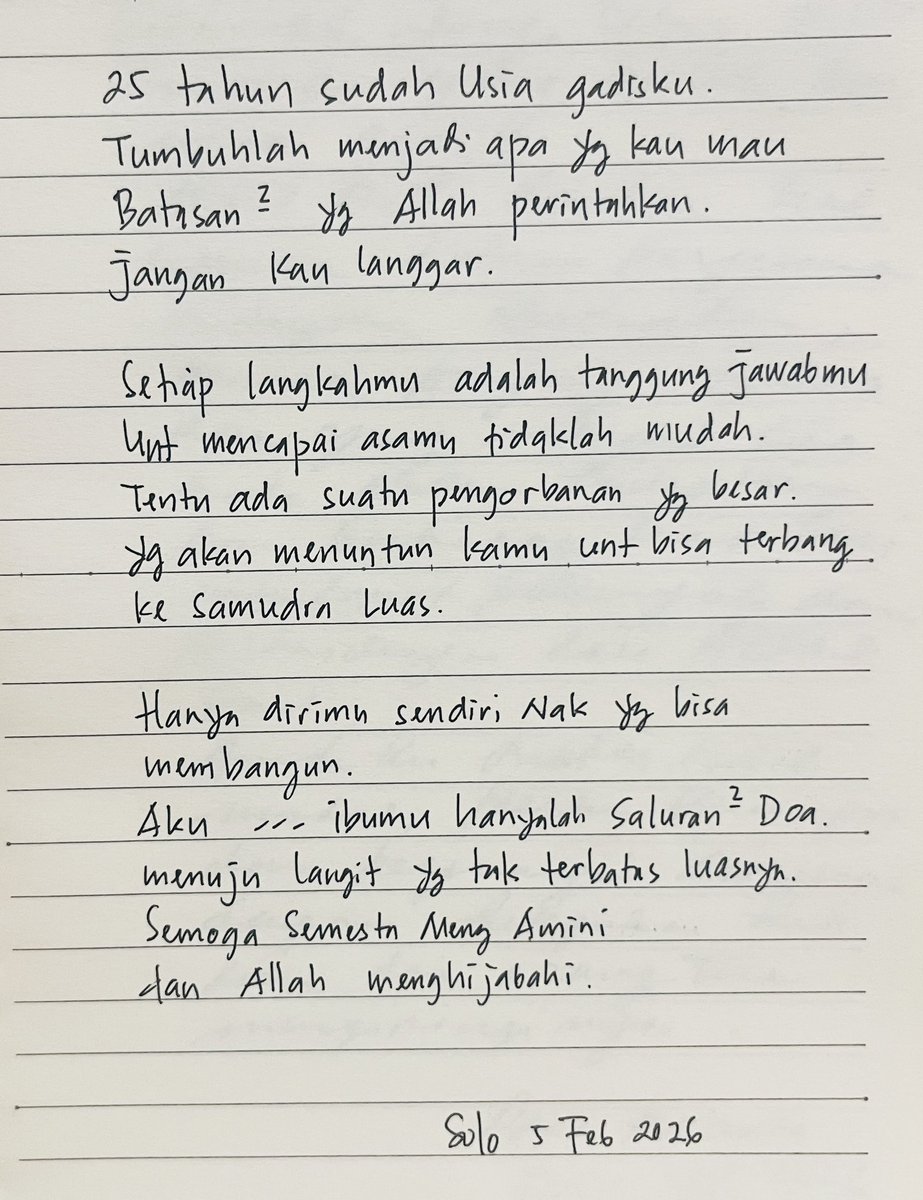 25 tahun sudah Usia gadisku.
Tumbuhlah menjadi apa yg kau mau
Batasan² yg Allah perintahkan.
jangan kau langgar.
Setiap langkahmu adalah tanggung jawabmu
Unt mencapai asamu tidaklah mudah.
Tentu ada suatu pengorbanan yg besar.
yg akan menuntun kamu unt bisa terbang
ke samudra Luas.
Hanya dirimu sendiri Nak yg bisa
membangun.
Aku --- ibumu hanyalah Saluran² Doa.
menuju langit yg tak terbatas luasnya.
Semoga Semesta Meng Amini
dan Allah menghijabahi.
Solo 5 Feb 2026